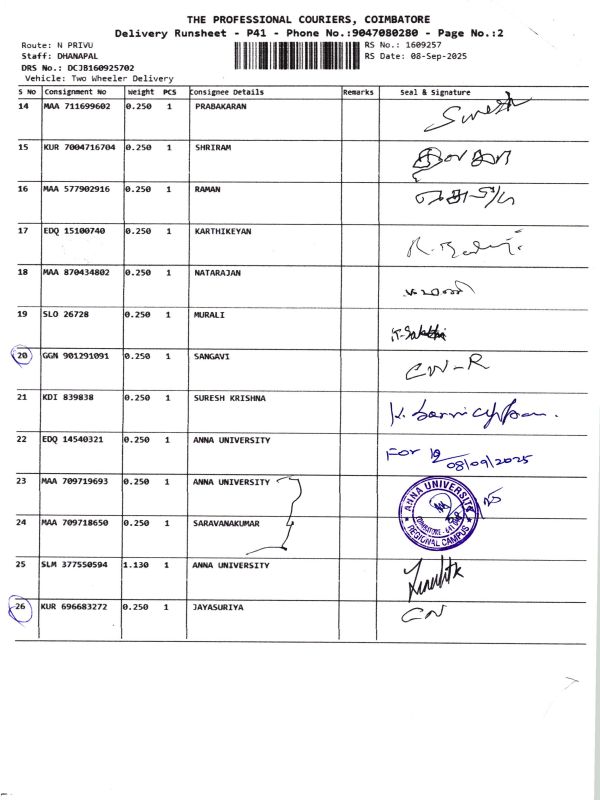 THE PROFESSIONAL COURIERS, COIMBATORE
Delivery Runsheet - P41 - Phone No.:9047080280 - Page No.:2
Route: N PRIVU RS No.: 1609257
Staff: DHANAPAL RS Date: 08-Sep-2025
DRS No.: DCJB160925702
Vehicle: Two Wheeler Delivery
S No Consignment No Weight PCS Consignee Details Remarks Seal & Signature
14 MAA 711699602 0.250 1 PRABAKARAN Suresh
15 KUR 7004716704 0.250 1 SHRIRAM
16 MAA 577902916 0.250 1 RAMAN
17 EDQ 15100740 0.250 1 KARTHIKEYAN
18 MAA 870434802 0.250 1 NATARAJAN
19 SLO 26728 0.250 1 MURALI
20 GGN 901291091 0.250 1 SANGAVI CN-R
21 KDI 839838 0.250 1 SURESH KRISHNA
22 EDQ 14540321 0.250 1 ANNA UNIVERSITY For
08/09/2025
23 MAA 709719693 0.250 1 ANNA UNIVERSITY
ANNA UNIVERSITY
24 MAA 709718650 0.250 1 SARAVANAKUMAR
REGIONAL CAMPUS
25 SLM 377550594 1.130 1 ANNA UNIVERSITY
26 KUR 696683272 0.250 1 JAYASURIYA CN